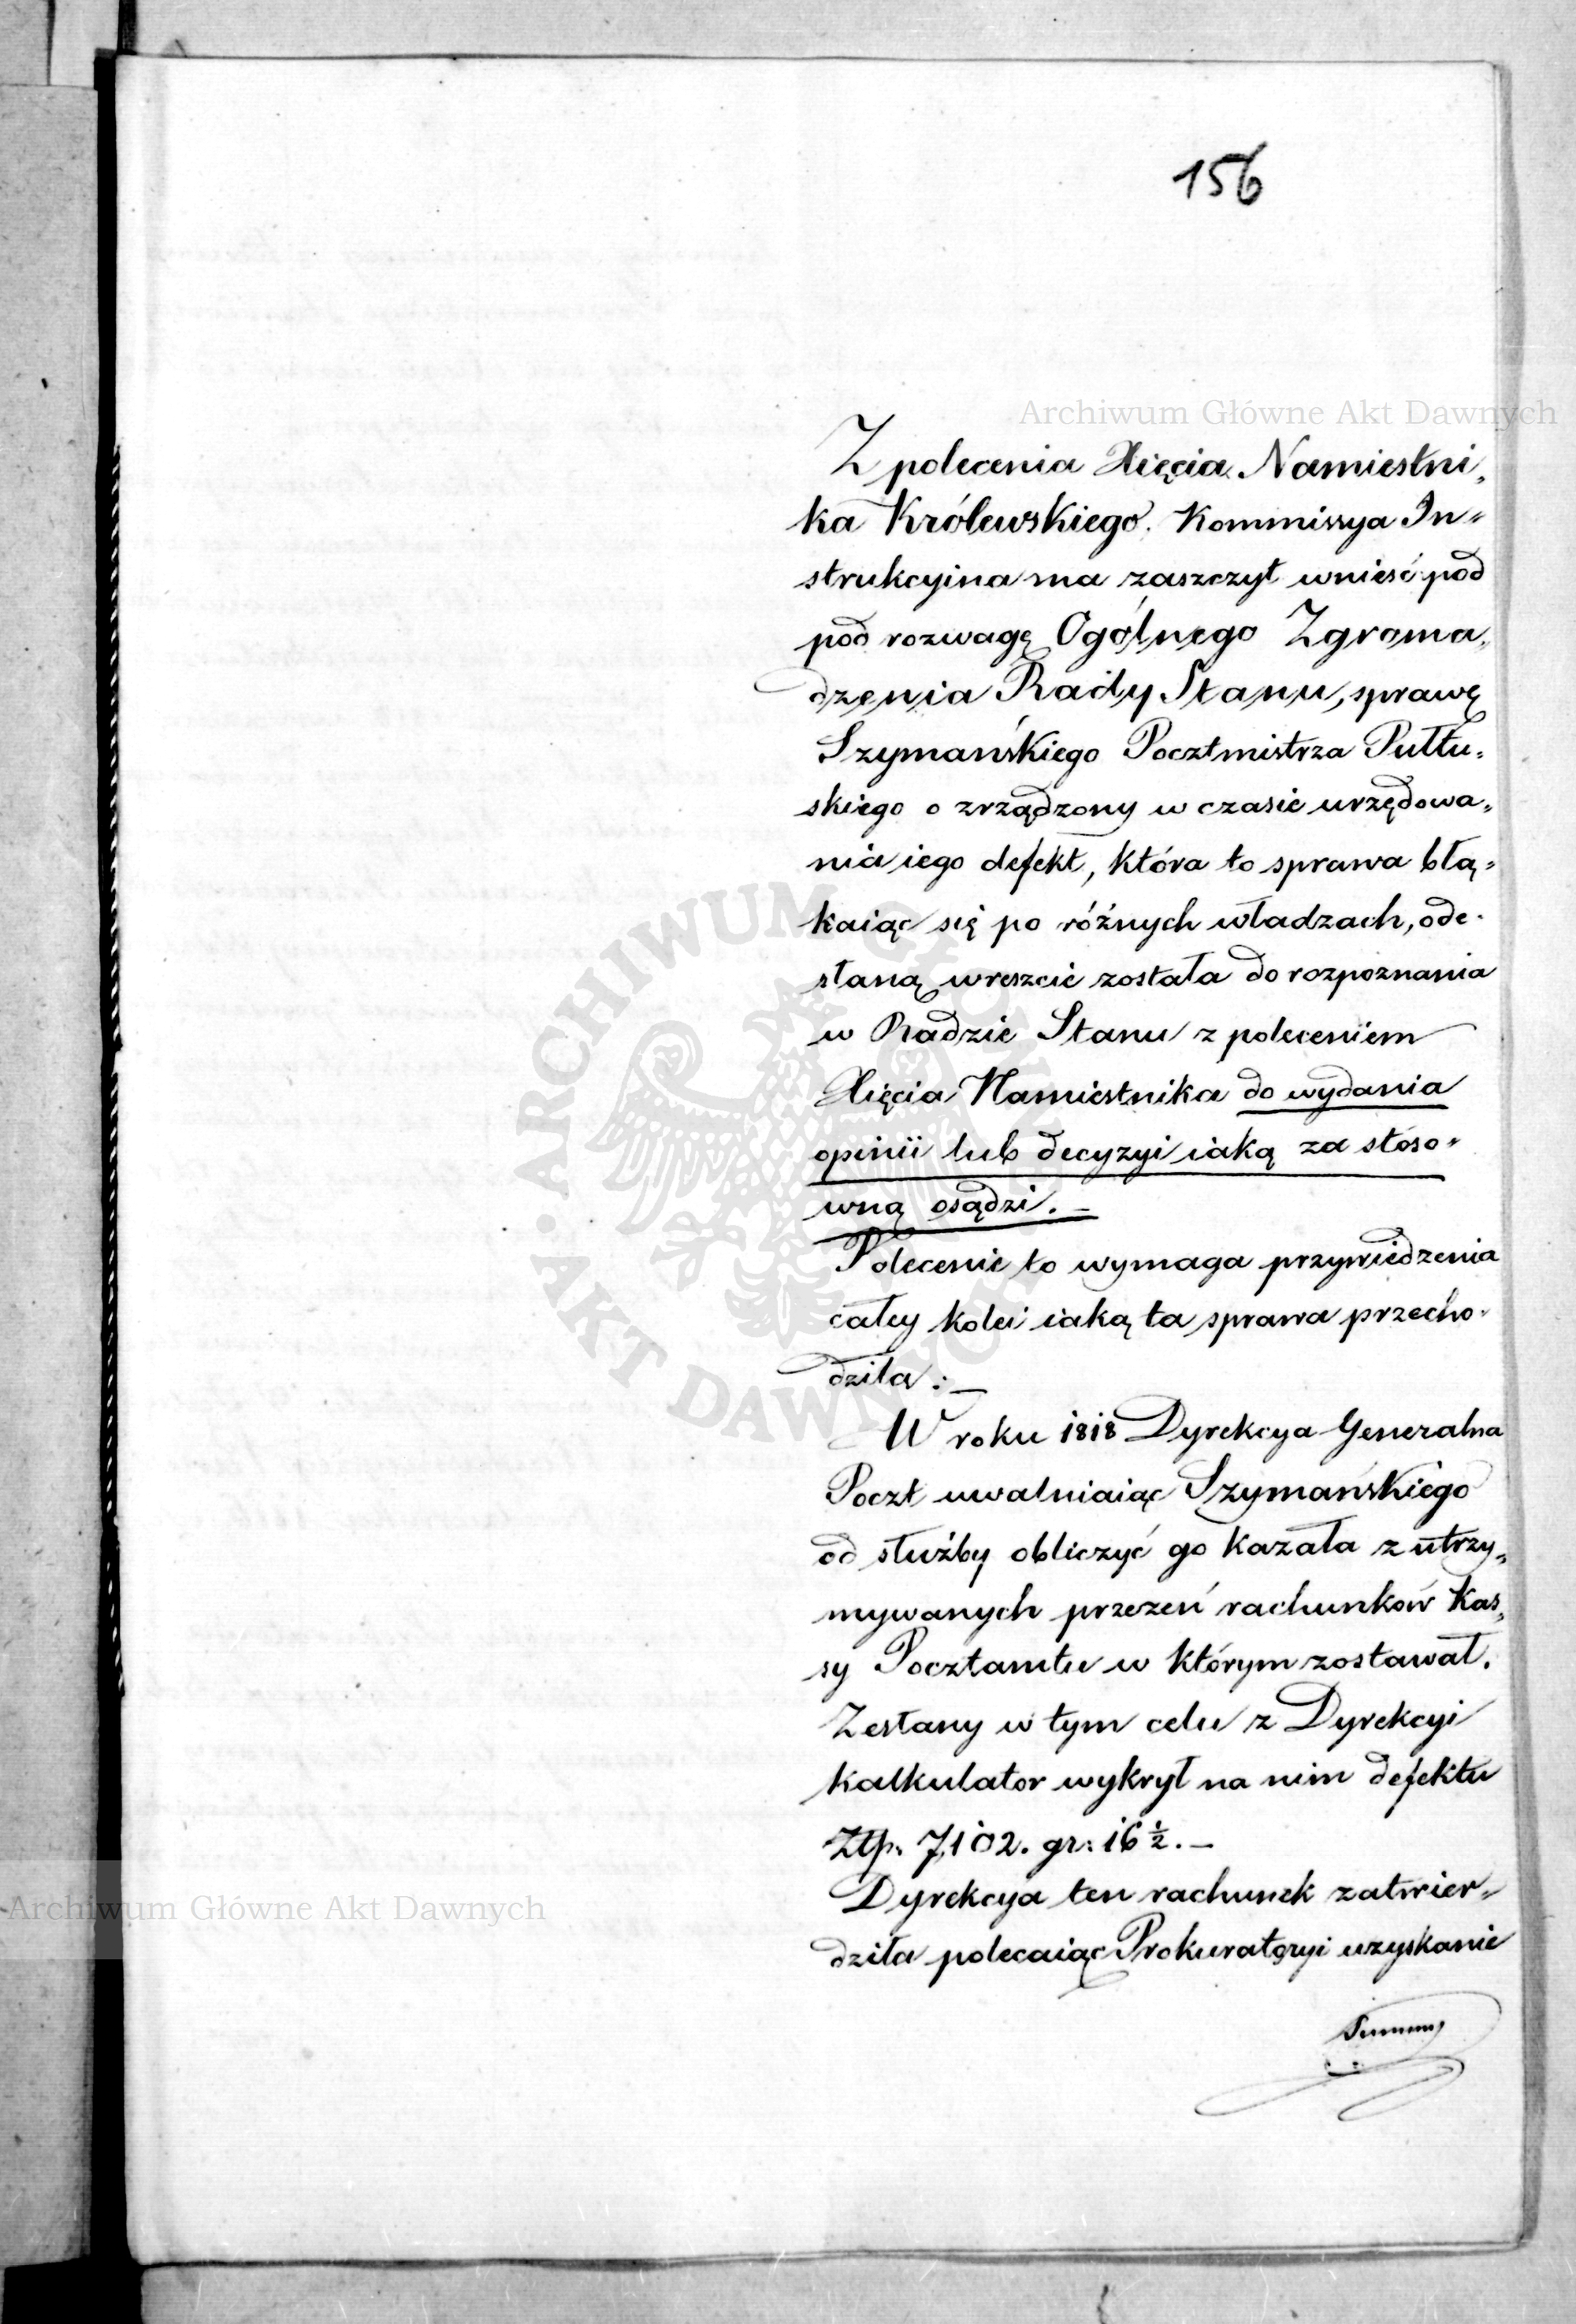 156
Archiwum Główne Akt Dawnych
Z polecenia Xięcia Namiestni„
ka Królewskiego. Kommissya In„
strukcyina ma zaszczyt wnieść pod
pod rozwagę Ogólnego Zgroma„
dzenia Rady Stanu, sprawę
Szymańskiego Pocztmistrza Pułtu„
skiego o zrządzony w czasie urzędowa„
nia iego defekt, która to sprawa błą„
kaiąc się po różnych władzach, ode„
słaną wreszcie została do rozpoznania
w Radzie Stanu z poleceniem
Xięcia Namiestnika do wydania
opinii lub decyzyi iaką za stoso„
wną osądzi. —
Polecenie to wymaga przywiedzenia
całey kolei iaką ta sprawa przecho„
dziła : —
W roku 1818 Dyrekcya Generalna
Poczt uwalniaiąc Szymańskiego
od służby obliczyć go kazała z utrzy„
mywanych przezeń rachunków Kas„
sy Pocztamtu w którym zostawał.
Zesłany w tym celu z Dyrekcyi
kalkulator wykrył na nim defektu
Złp. 7,102. gr: 16 ½. —
Dyrekcya ten rachunek zatwier„
dziła polecaiąc Prokuratoryi uzyskanie
Archiwum Główne Akt Dawnych
ARCHIWUM GŁÓWNE AKT DAWNYCH